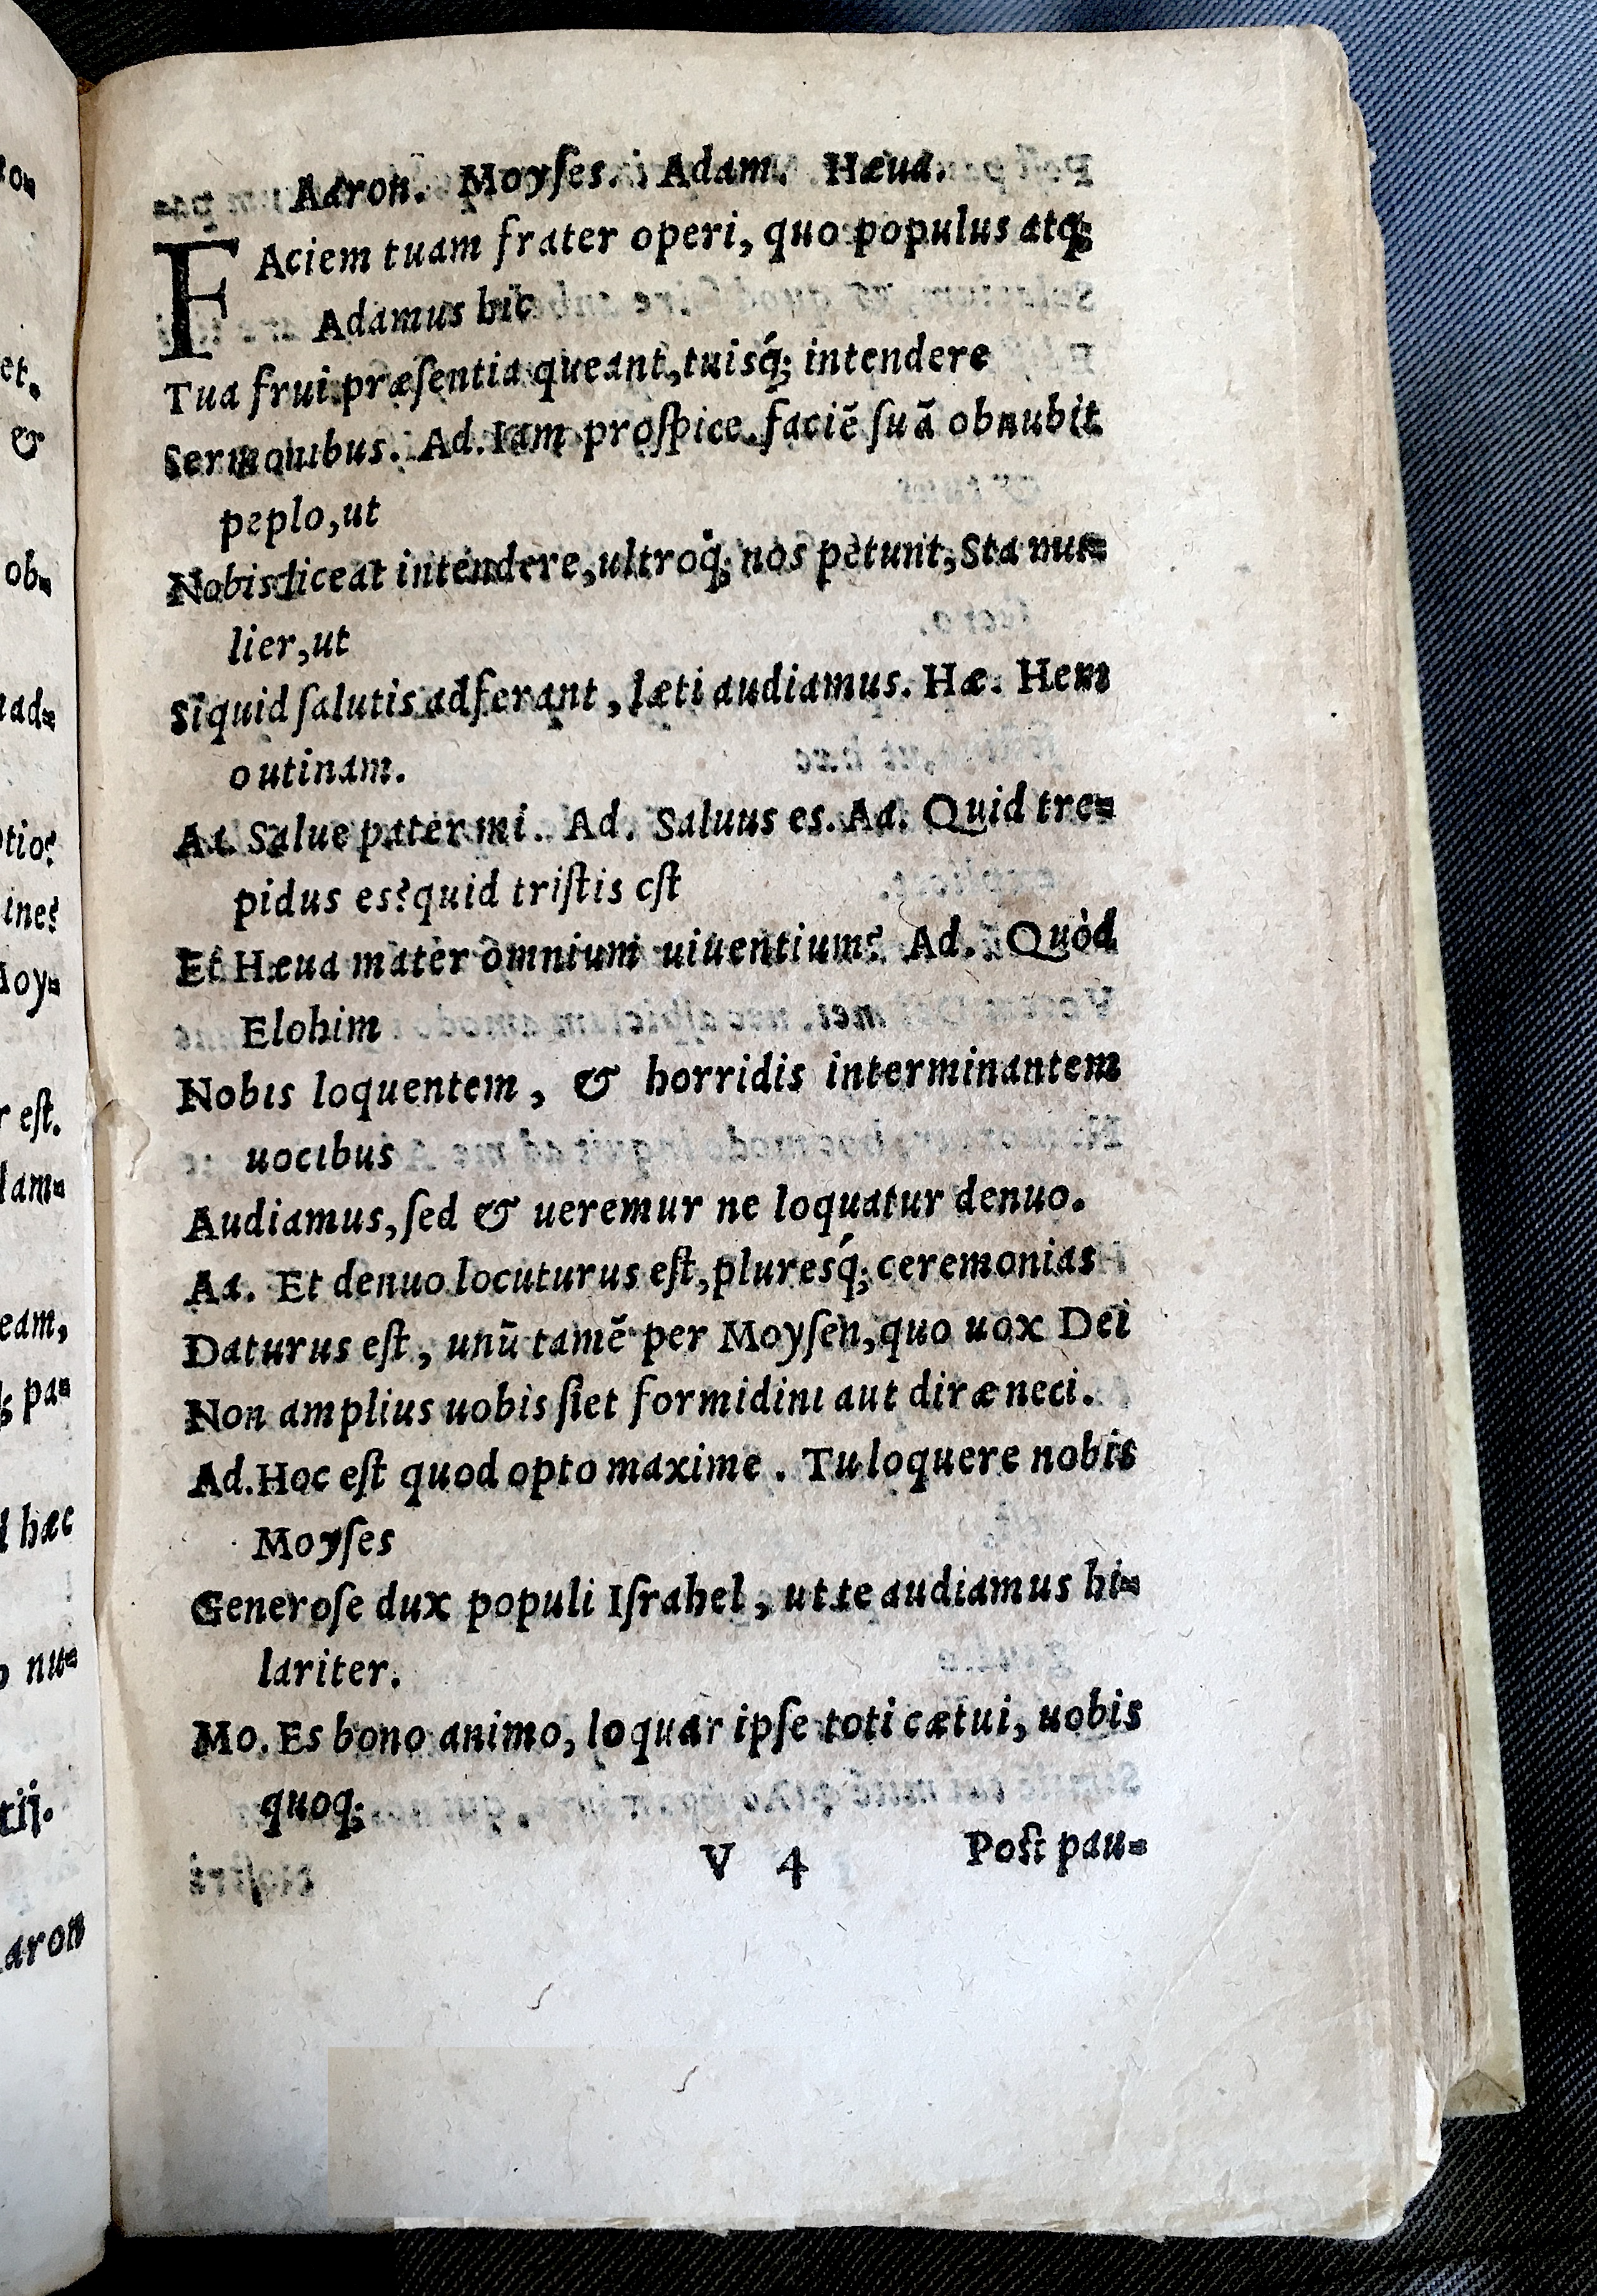 Aaron. Moyſes. Adam. Hæua.
FAciem tuam frater operi, quo populus atq;
Adamus hic
Tua frui præſentia queant, tuisq́; intendere
Sermonibus. Ad. Iam proſpice. faciē ſuā obnubit
peplo, ut
Nobis liceat intendere, ultroq́; nos petunt, Sta mu-
lier, ut
Siquid ſalutis adferant, læti audiamus. Hæ. Hem
o utinam.
Aa. Salue pater mi. Ad. Saluus es. Aa. Quid tre-
pidus es? quid triſtis eſt
Et Hæua mater omnium uiuentium? Ad. Quòd
Elohim
Nobis loquentem, & horridis interminantem
uocibus
Audiamus, ſed & ueremur ne loquatur denuo.
Aa. Et denuo locuturus eſt, pluresq́; ceremonias
Daturus eſt, unū tamē per Moyſen, quo uox Dei
Non amplius uobis ſiet formidini aut diræ neci.
Ad. Hoc eſt quod opto maxime. Tu loquere nobis
Moyſes
Generoſe dux populi Iſrahel, ut te audiamus hi-
lariter.
Mo. Es bono animo, loquar ipſe toti cætui, uobis
quoq;
V 4 Poſt pau-